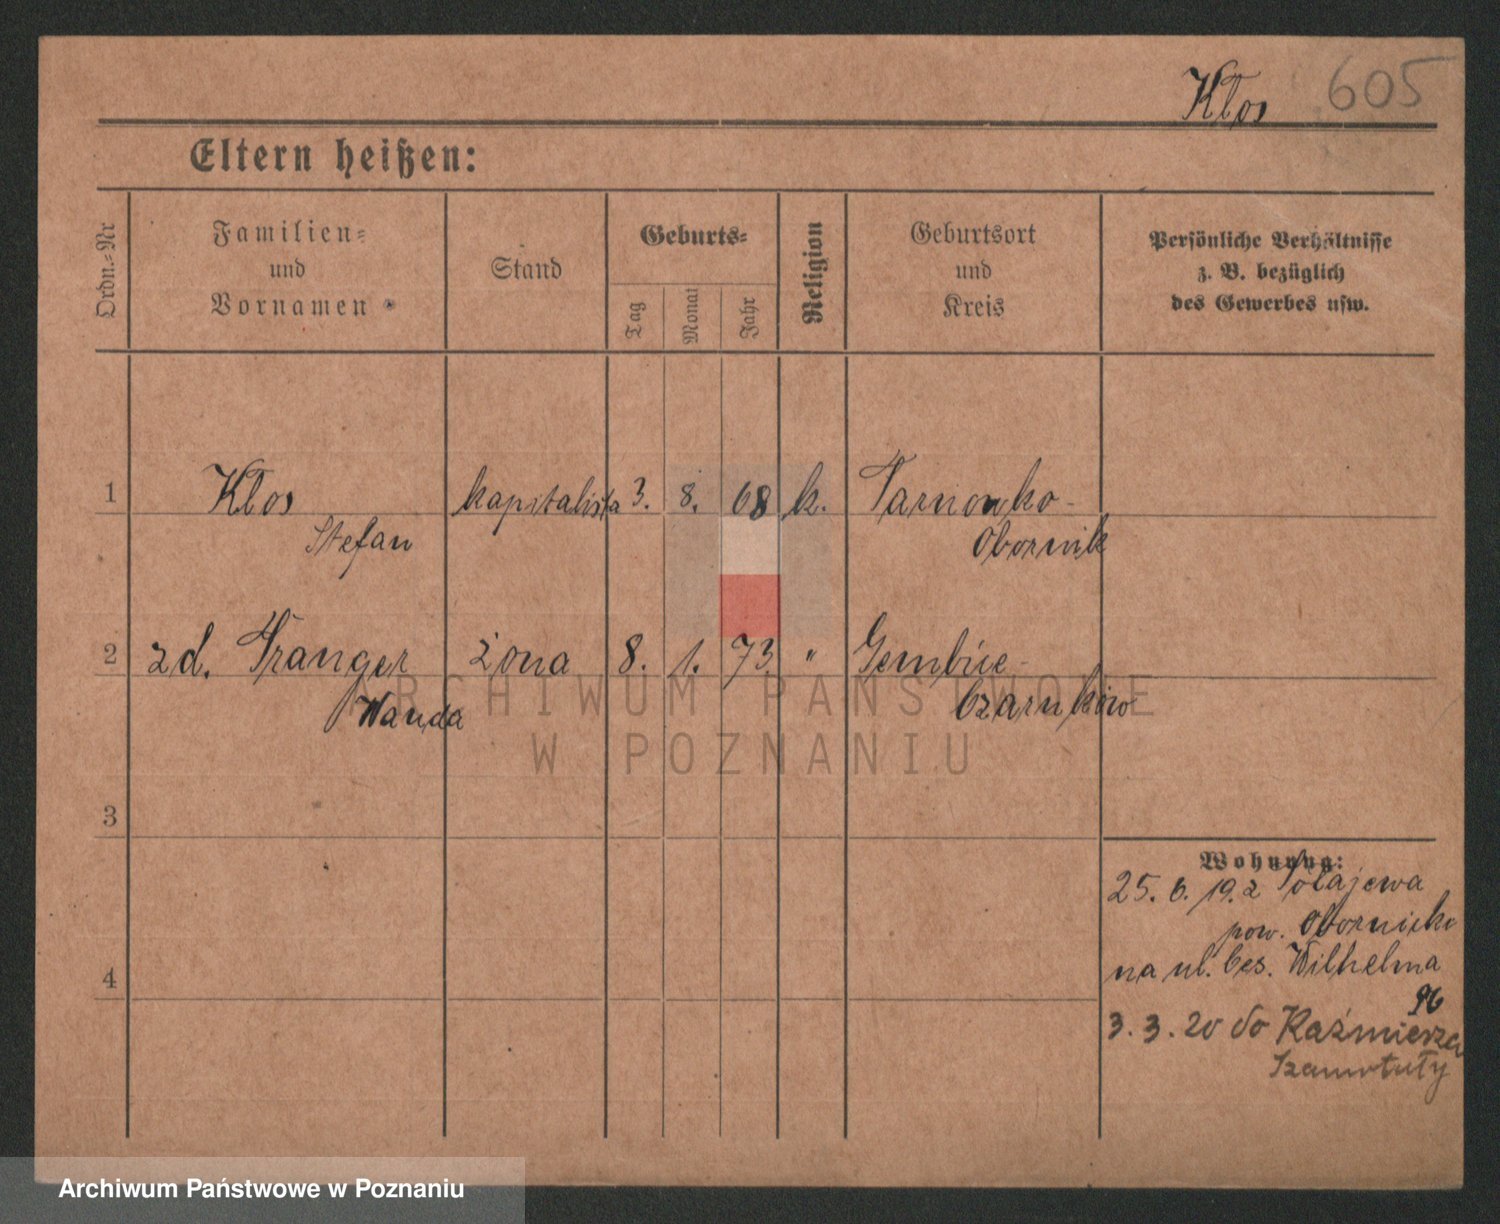 Kłos 605
Eltern heißen:
Ordn.-Nr
Familien-
und
Vornamen
Stand
Geburts-
Tag
Monat
Jahr
Religion
Geburtsort
und
Kreis
Persönliche Verhältnisse
z. B. bezüglich
des Gewerbes usw.
1 Kłos kapitalista 3. 8. 68 k. Tarnowko -
Stefan Obornik
2 zd. Franger żona 8. 1. 73 " Gembice -
Wanda Czarnków
ARCHIWUM PAŃSTWOWE
W POZNANIU
3
Wohnung:
25. 6. 19. z Połajewa
pow. Obornicki
4
na ul. Ces. Wilhelma
3. 3. 20 do Kaźmierza
Szamotuły
Archiwum Państwowe w Poznaniu